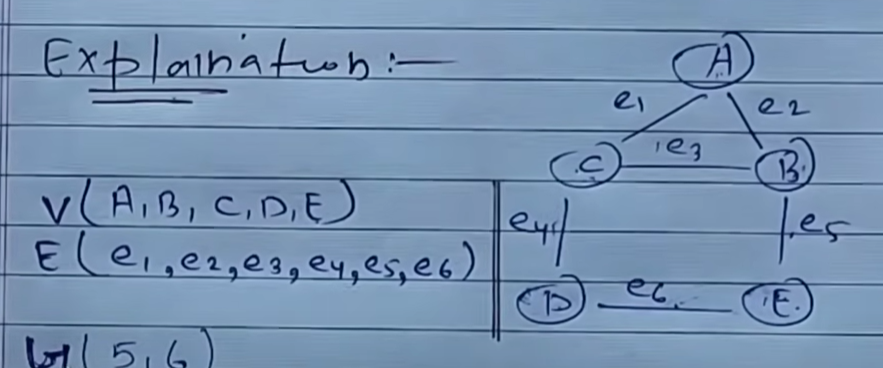 Explaination :-
V(A, B, C, D, E)
E(e1, e2, e3, e4, e5, e6)
(5, 6)
A
e1 e2
C e3 B
e4 e5
D e6 E